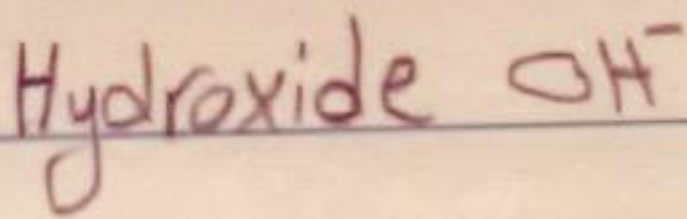 Hydroxide OH⁻